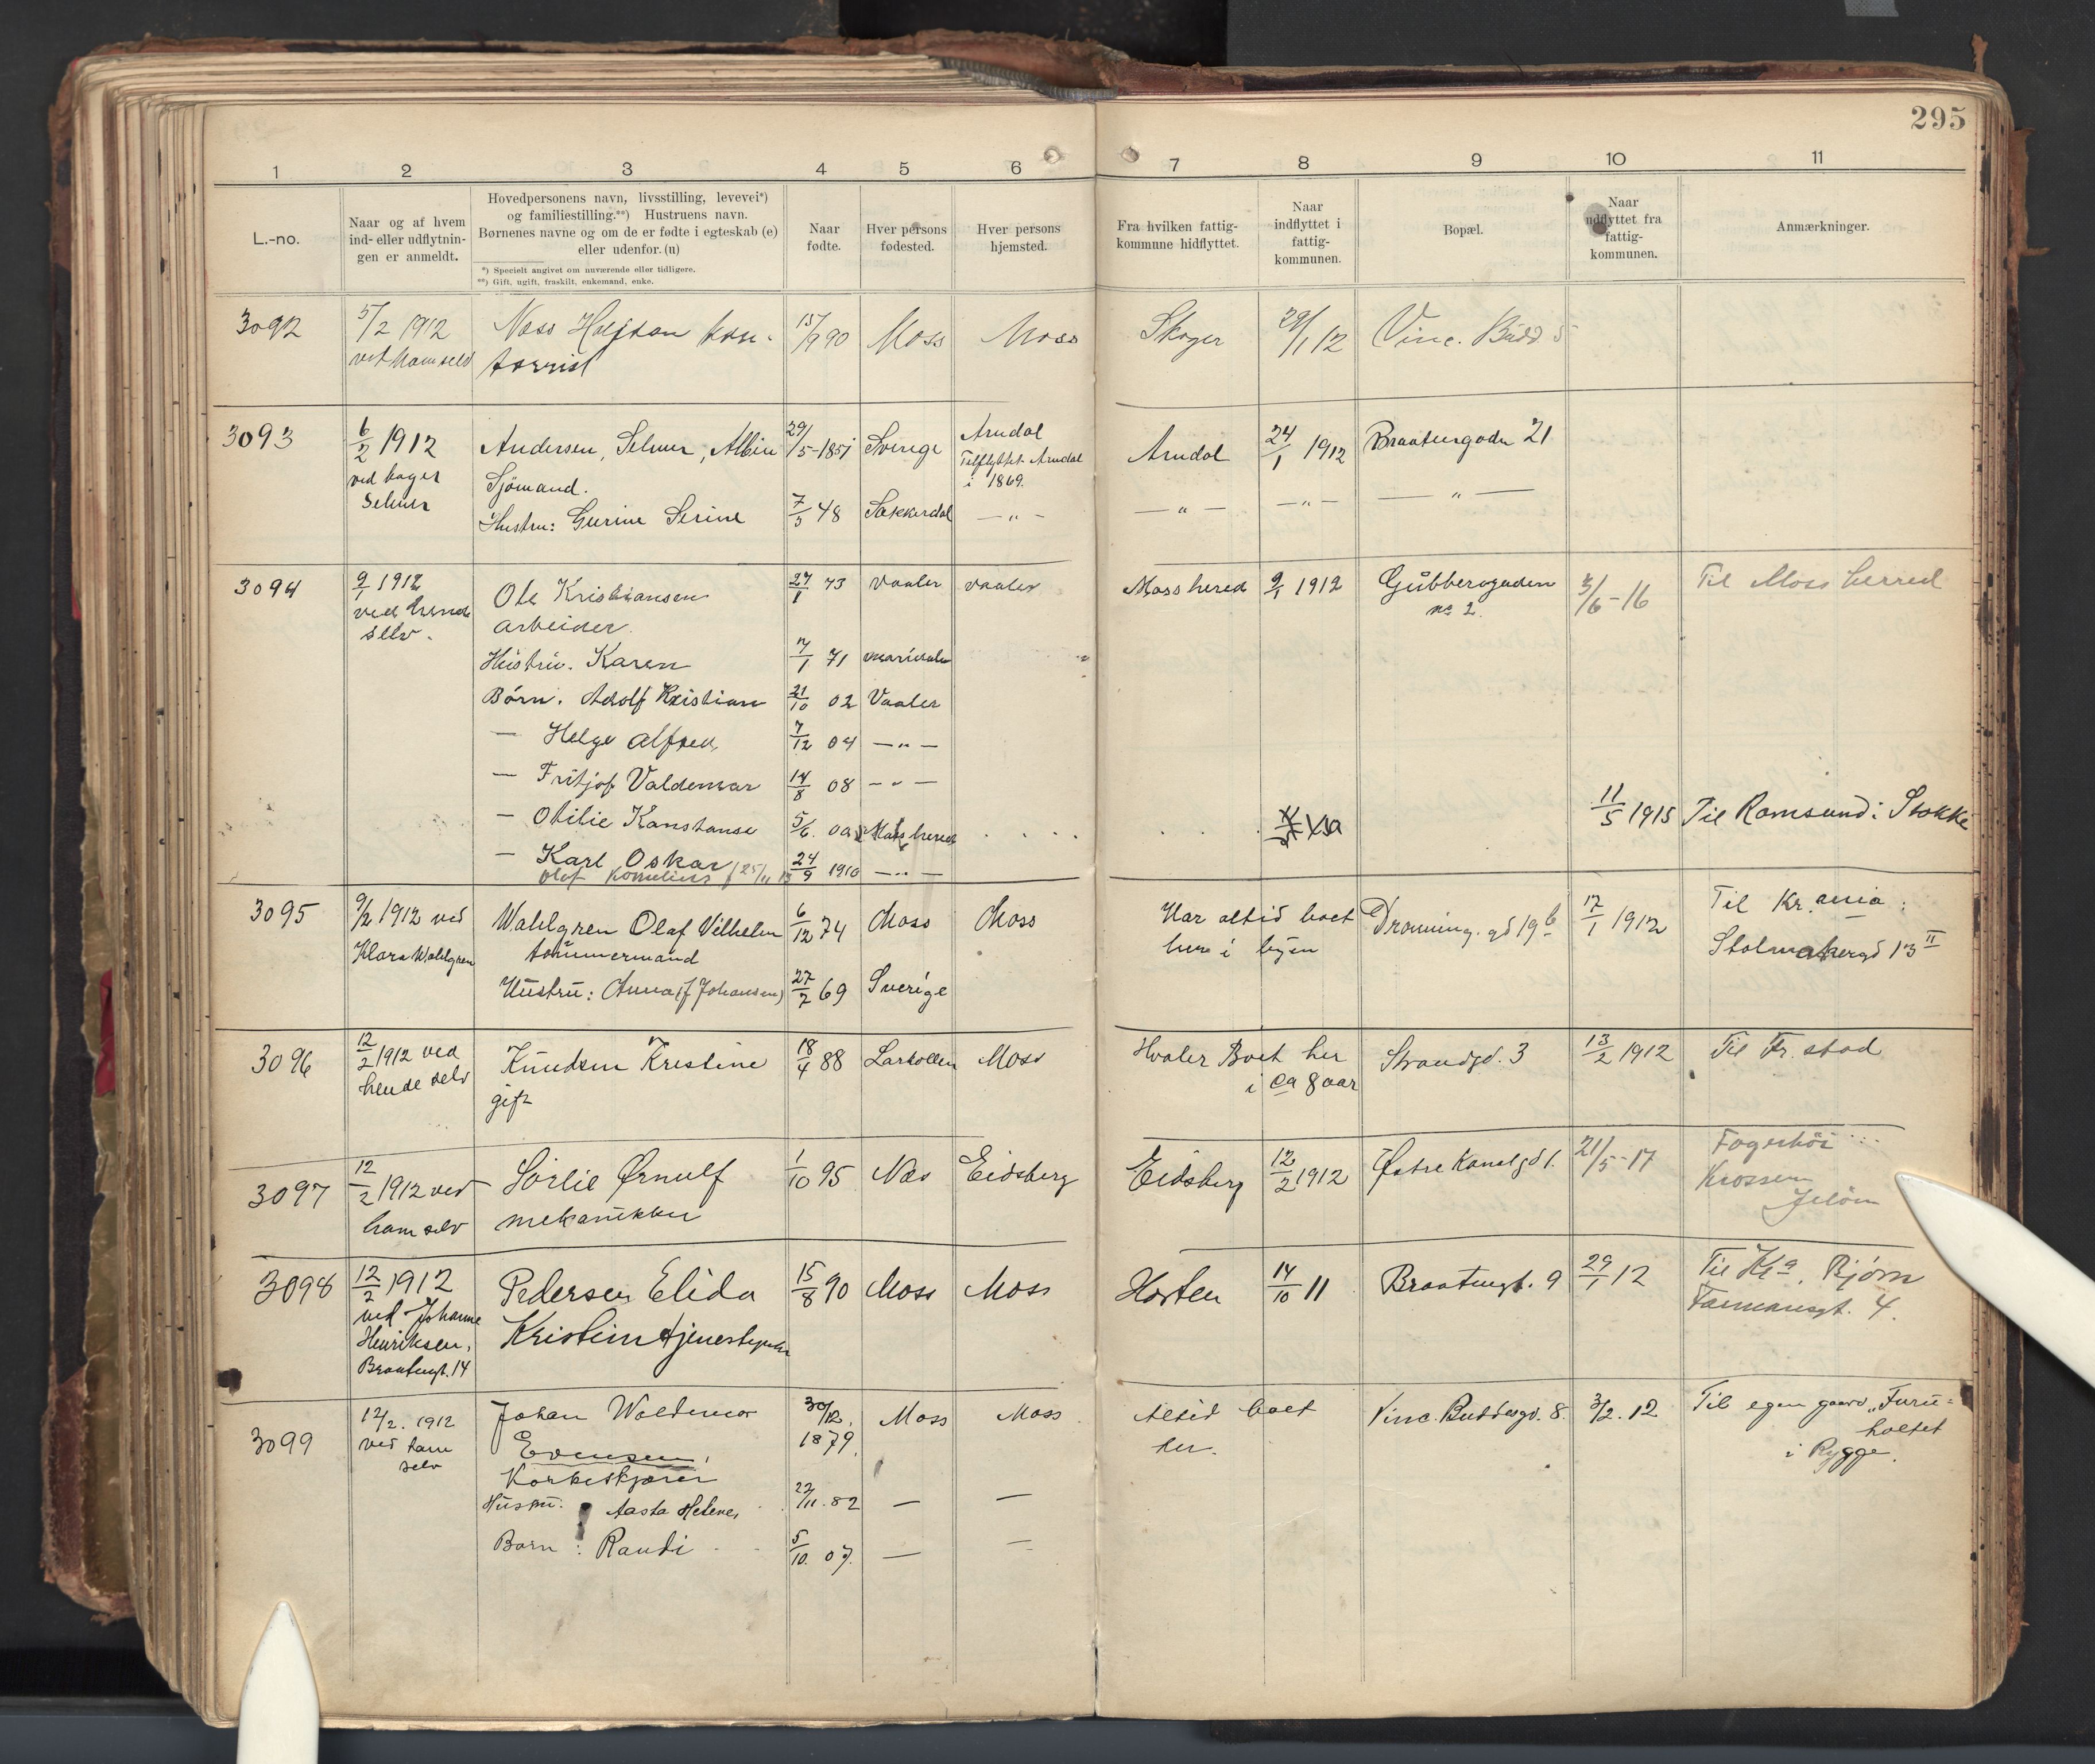 295
1 2 3 4 5 6 7 8 9 10 11
L.-no.
Naar og af hvem
ind- eller udflytnin-
gen er anmeldt.
Hovedpersonens navn, livsstilling, levevei*)
og familiestilling.**) Hustruens navn.
Børnenes navne og om de er fødte i egteskab (e)
eller udenfor. (u)
*) Specielt angivet om nuværende eller tidligere.
**) Gift, ugift, fraskilt, enkemand, enke.
Naar
fødte.
Hver persons
fødested.
Hver persons
hjemsted.
Fra hvilken fattig-
kommune hidflyttet.
Naar
indflyttet i
fattig-
kommunen.
Bopæl.
Naar
udflyttet fra
fattig-
kommunen.
Anmærkninger.
3092 5/2 1912 Næss Halfdan kon- 15/9 90 Moss Moss Skoger 29/1 12 Vinc. Budd 5
ved ham selv torrist
3093 6/2 1912 Andersen, Selmer, Albin 29/5-1851 Sverige Arndal Arndal 24/1 1912 Braatengaden 21
ved bager Sjömand. Tilflyttet Arndal
Selmer i 1869.
Hustru: Gurine Serine 7/5 48 Sækkerdal — " — — " — — " — — " —
3094 9/1 1912 Ole Kristiansen 27/1 73 Vaaler Vaaler Moss hered 9/1 1912 Gübberogaden 3/6-16 Til Moss herred
ved hende arbeider no 2.
selv.
Hüstrü. Karen 7/1 71
Børn. Adolf Kristian 21/10 02 Vaaler
— Helge Alfred 7/12 04 — " —
— Fritjof Valdemar 14/8 08 — " —
— Otilie Konstanse 5/6 Moss hered 11/5 1915 Til Ramsund i Stokke
— Karl Oskar 24/9 1910 — " —
Olaf Kornelius 25/11 13
3095 9/2 1912 ved Wahlgren Olaf Vilhelm 6/12 74 Moss Moss Har altid boet Dronning. gd 19b 17/1 1912 Til Kr.ania
Klara Wahlgren tömmermand her i byen Stolmakergd 13 II
Hüstrü: Anna (f Johansen) 27/7 69 Sverige
3096 12/2 1912 ved Knudsen Kristine 18/4 88 Larkollen Moss Hvaler Boet her Strandgd. 3 13/2 1912 Til Fr. stad
hende selv gift i ca 8 aar
3097 12/2 1912 ved Sörlie Ørnulf 1/10 95 Næs Eidsberg Eidsberg 12/2 1912 Østre Kanalgd 1. 21/5-17 Fagerhöi
ham selv mekanikker Krossern
Jelöen
3098 12/2 1912 Pedersen Elida 15/8 90 Moss Moss Horten 14/10 11 Braatengt. 9 29/1 12 Til Kr.a, Bjørn
ved Johanne Kristine tjenestepike Farmansgt. 4.
Henriksen,
Braatengt. 14
3099 12/2. 1912 Johan Woldemar 30/12. 1879 Moss Moss Altid boet Vinc. Buddesgd. 8. 3/2. 12 Til egen gaard "Furu-
ved ham Evensen, her. holtet
selv Korkeskjærer i Rygge.
Hüstrü: Aasta Helene, 22/11. 82 — —
Barn: Randi 5/10. 07. — —